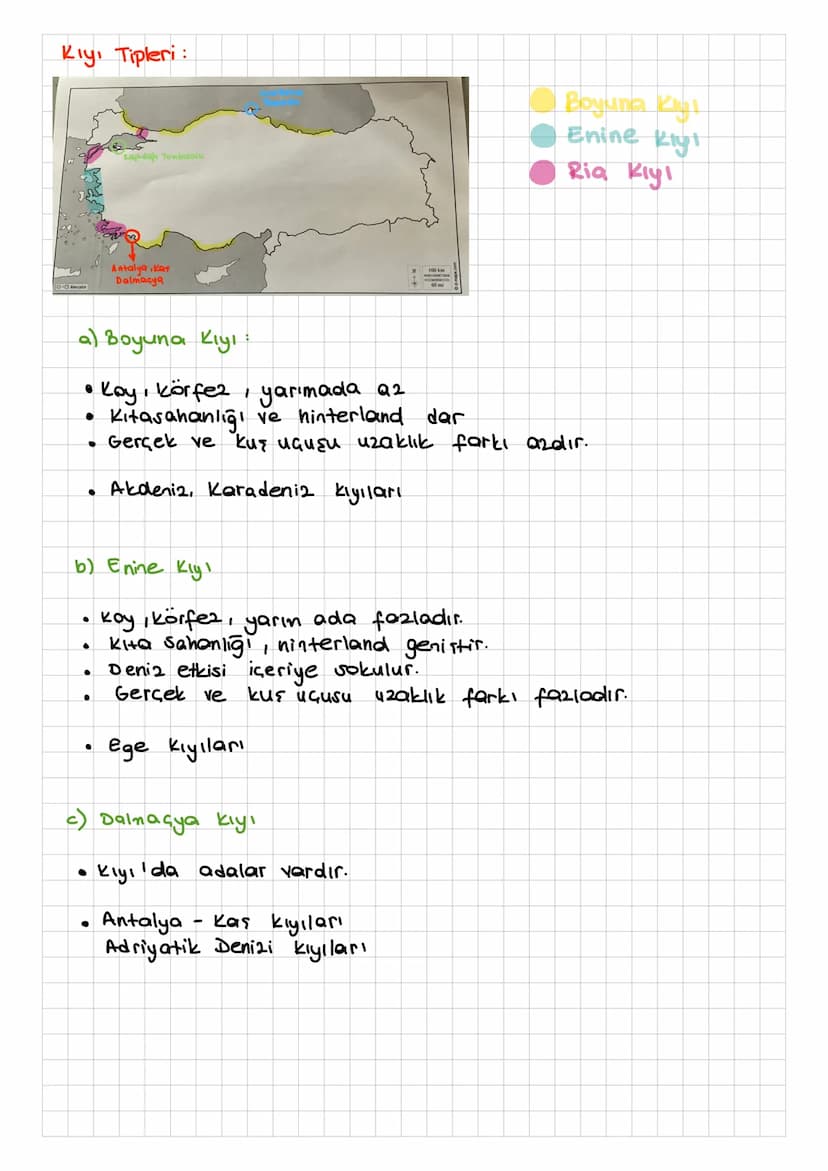 Kıyı Tipleri :
Boyuna Kıyı
Enine Kıyı
Ria Kıyı
Kapıdağı Tombolosu
Antalya, Kaş
Dalmaçya
100 km
60 mi
a) Boyuna Kıyı :
• Koy, körfez, yarımada az
• Kıtasahanlığı ve hinterland dar
• Gerçek ve kuş uçuşu uzaklık farkı azdır.
• Akdeniz, Karadeniz kıyıları
b) Enine Kıyı
• Koy, körfez, yarım ada fazladır.
• Kıta sahanlığı, hinterland geniştir.
• Deniz etkisi içeriye sokulur.
• Gerçek ve kuş uçusu uzaklık farkı fazladır.
• Ege kıyıları
c) Dalmaçya Kıyı
• Kıyı'da adalar vardır.
• Antalya - Kaş kıyıları
Adriyatik Denizi kıyıları